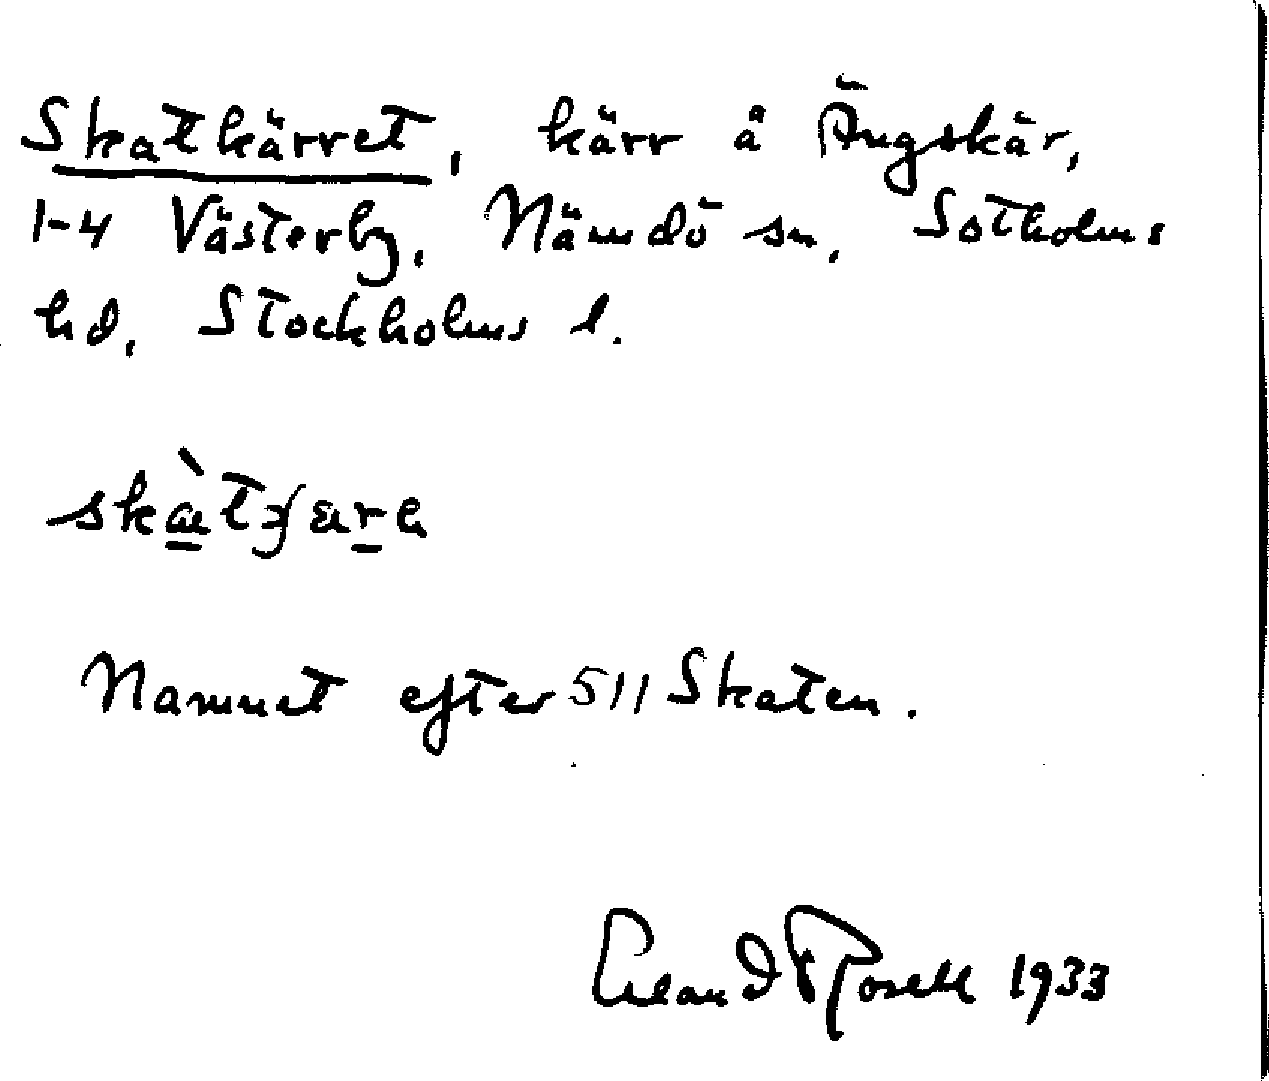 Skatkärret, kärr å Ängskär,
1-4 Västerby, Nämdö sn, Sotholms
hd, Stockholms l.
Namnet efter 511 Skaten.
Erland Rosell 1933